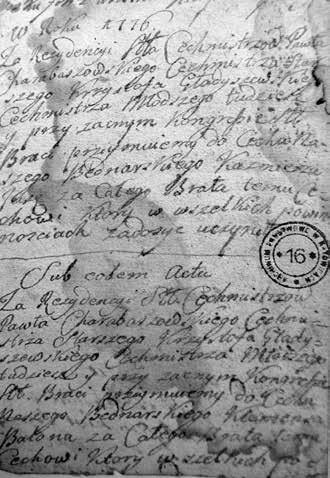 W Roku 1776
Za Rezydencyi Płł Cechmistrzow Pawła
Charabaszowskiego Cechmistrza Star
szego Krzysztofa Gładyszewskie
Cechmistrza Młodszego tudziesz
y przy zacnym Kongresie Płł
Braci przyimuiemy do Cechu Na
szego Bednarskiego Kazimierza
za Całego Brata temu C
echowi ktory w wszelkich powin
nosciach zadosyc uczynił
16
Sub eodem Actu
Za Rezydencyi Płł Cechmistrzow
Pawła Charabaszowskiego Cechmi
strza Starszego Krzysztofa Głady
szewskiego Cechmistrza Młodszego
tudziesz y przy zacnym Kongresie
Płł Braci przyimuiemy do Cechu
Naszego Bednarskiego
Batona za Całego Brata temu
Cechowi ktory w wszelkich po